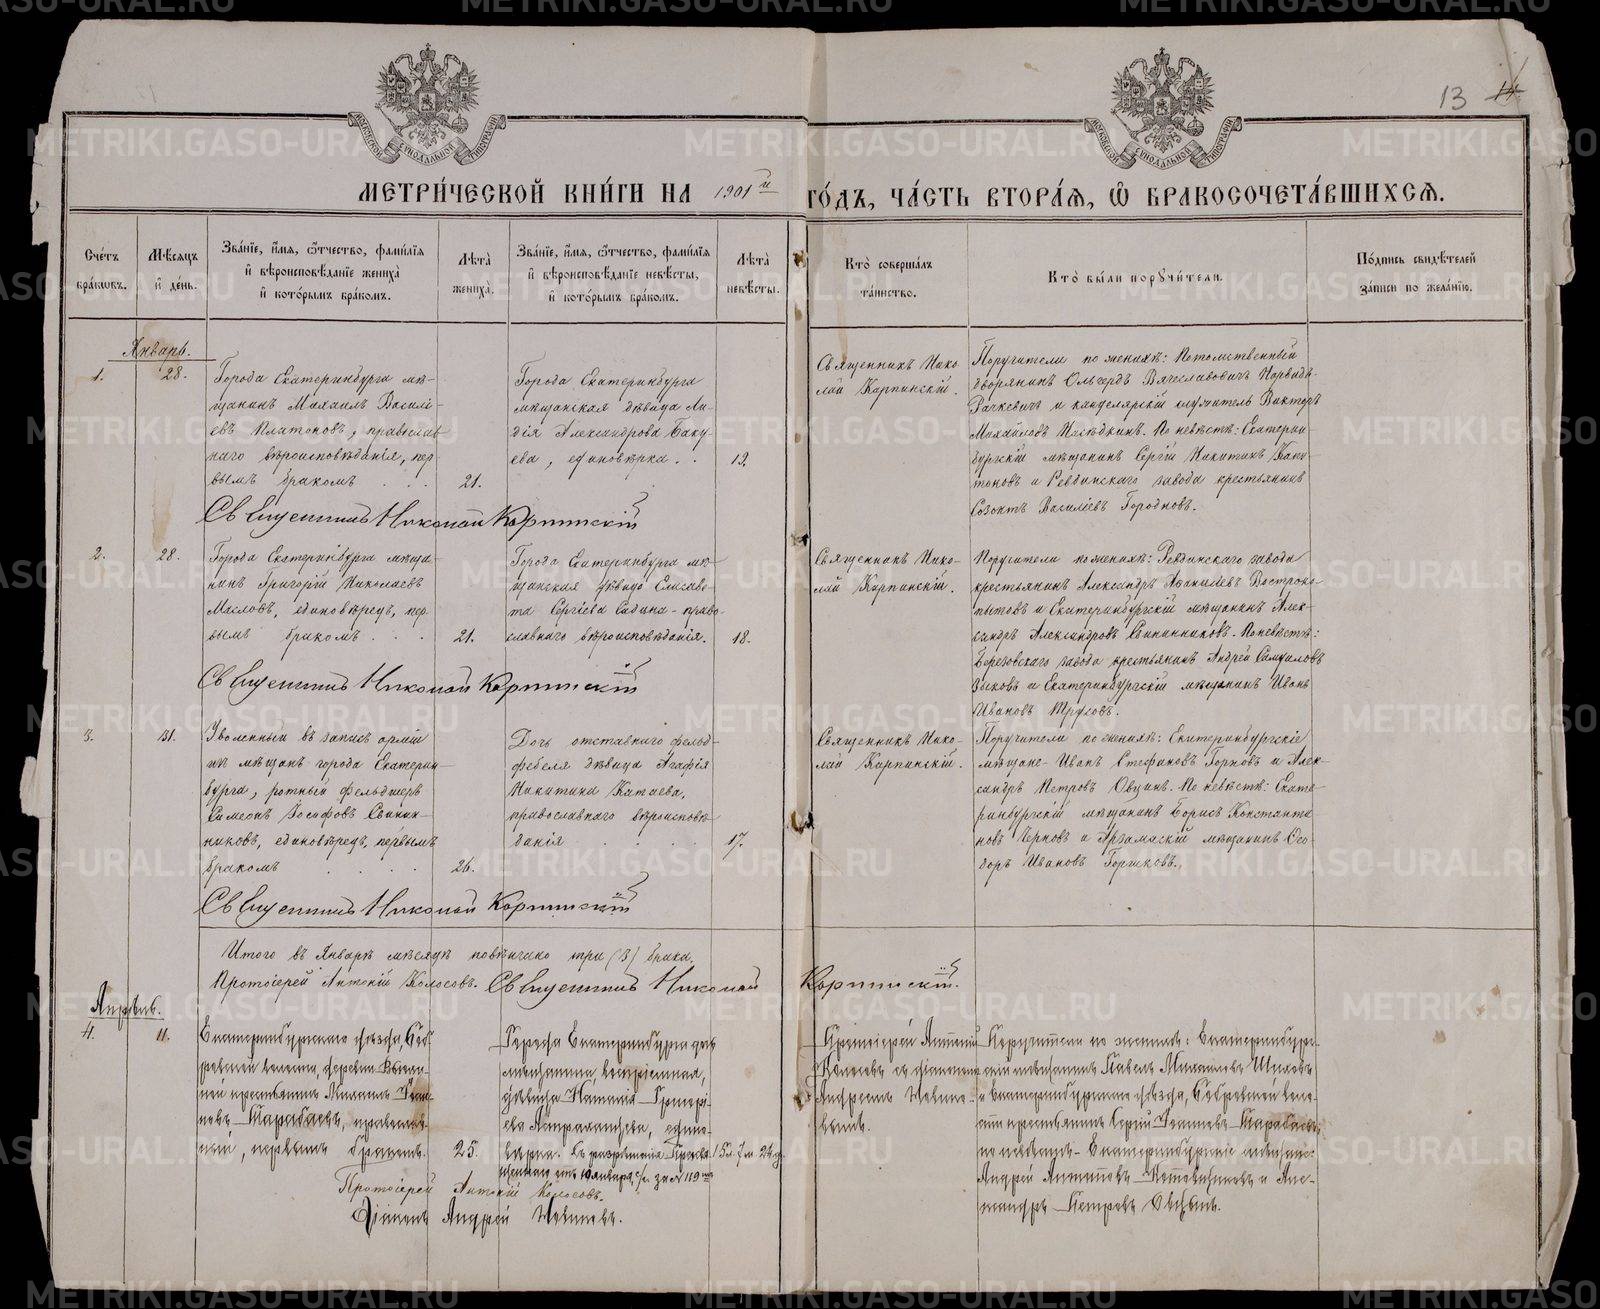 13 14
МЕТРИ́ЧЕСКОЙ КНИ́ГИ НА 1901й ГО́ДЪ, ЧА́СТЬ ВТОРА́Я, Ѿ БРАКОСОЧЕТА́ВШИХСЯ.
Сче́тъ бра́кѡвъ.
Мѣ́сяцъ и҆ де́нь.
Зва́нїе, и҆́мя, ѻ҆́тчество, фами́лїя
и҆ вѣроисповѣ́данїе жениха̀
и҆ кото́рымъ бра́комъ.
Лѣ́та̀ жениха̀.
Зва́нїе, и҆́мя, ѻ҆́тчество, фами́лїя
и҆ вѣроисповѣ́данїе невѣ́сты,
и҆ кото́рымъ бра́комъ.
Лѣ́та̀ невѣ́сты.
Кто̀ соверша́лъ
та́инство.
Кто̀ бы́ли порꙋчи́тели.
По́дпись свидѣ́телей
за́писи по жела́нїю.
Январь.
1.
28.
Города Екатеринбурга мѣ-
щанинъ Михаилъ Василі-
евъ Платоновъ, православ-
наго вѣроисповѣданія, пер-
вымъ бракомъ . . .
21.
Города Екатеринбурга
мѣщанская дѣвица Ли-
дія Александрова Баку-
ева, единовѣрка. .
19.
Священникъ Нико-
лай Карпинскій.
Поручители по женихѣ: Потомственный
дворянинъ Ольгердъ Вячеславовичъ Нарвидъ-
Рачкевичъ и канцелярскій служитель Викторъ
Михайловъ Наслѣдкинъ. По невѣстѣ: Екатерин-
бургскій мѣщанинъ Сергій Никитинъ Плато-
новъ и Ревдинскаго завода крестьянинъ
Созонтъ Василіевъ Городновъ.
Священникъ Николай Карпинскій
2.
28.
Города Екатеринбурга мѣща-
нинъ Григорій Николаевъ
Масловъ, единовѣрецъ, пер-
вымъ бракомъ . . .
21.
Города Екатеринбурга мѣ-
щанская дѣвица Елисаве-
та Сергіева Садина - право-
славнаго вѣроисповѣданія.
18.
Священникъ Нико-
лай Карпинскій.
Поручители по женихѣ: Ревдинскаго завода
крестьянинъ Александръ Вострокo-
пытовъ и Екатеринбургскій мѣщанинъ Алек-
сандръ Александровъ Свининниковъ. По невѣстѣ:
Березовскаго завода крестьянинъ Андрей Самуиловъ
Зыковъ и Екатеринбургскій мѣщанинъ Иванъ
Ивановъ Трусовъ.
Священникъ Николай Карпинскій
3.
31.
Уволенный въ запасъ арміи
изъ мѣщанъ города Екатерин-
бурга, ротный фельдшеръ
Симеонъ Іосифовъ Свинин-
никовъ, единовѣрецъ, первымъ
бракомъ . . . .
26.
Дочь отставнаго фельд-
фебеля дѣвица Агафія
Никитина Катаева,
православнаго вѣроисповѣ-
данія . . . .
17.
Священникъ Нико-
лай Карпинскій.
Поручители по женихѣ: Екатеринбургскіе
мѣщане - Иванъ Стефановъ Горновъ и Алек-
сандръ Петровъ Овчинъ. По невѣстѣ: Екате-
ринбургскій мѣщанинъ Борисъ Константи-
новъ Черновъ и Арзамаскій мѣщанинъ Ѳео-
доръ Ивановъ Горшковъ.
Священникъ Николай Карпинскій
Итого въ Январѣ мѣсяцѣ повѣнчано три (3) брака.
Протоіерей Антоній Колосовъ. Священникъ Николай Карпинскій.
Апрѣль.
4.
11.
Екатеринбургскаго уѣзда, Боб-
ровской волости, деревни
крестьянинъ Михаилъ Іоан-
новъ Тарабаевъ, православ-
ный, первымъ бракомъ.
25.
Города Екатеринбурга дочь
мѣщанина,
дѣвица Наталія Григорі-
ева Астраханцева, едино-
вѣрка. Съ разрѣшенія Преосвя-
щеннаго отъ 10 января с/г. за № 119мъ
15 л. 7 м 24 д.
Протоіерей Антоній
Колосовъ съ діакономъ
Андреемъ
Поручители по женихѣ: Екатеринбург-
скій мѣщанинъ Павелъ Михаиловъ Шиховъ
и Екатеринбургскаго уѣзда, Бобровской воло-
сти крестьянинъ Сергій Іоанновъ Тарабаевъ,
по невѣстѣ - Екатеринбургскіе мѣщане:
Андрей Антиповъ и Але-
ксандръ Петровъ Овчинъ.
Протоіерей Антоній Колосовъ.
Діаконъ Андрей